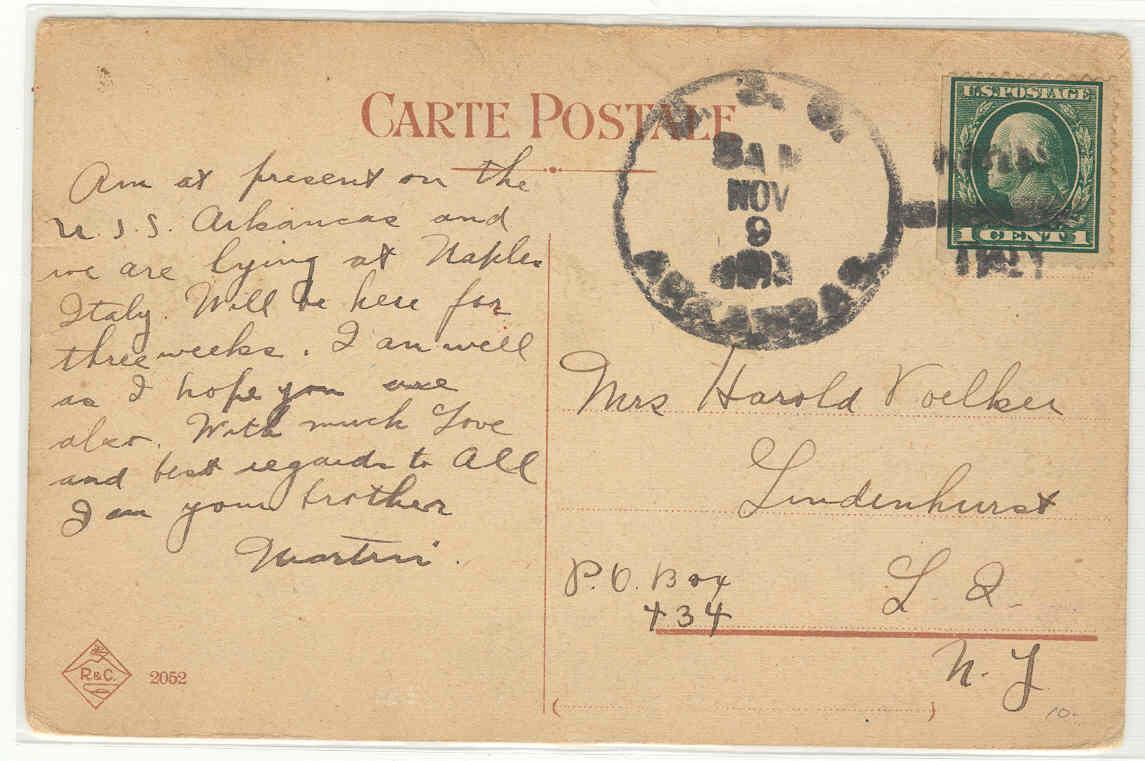 CARTE POSTALE
U.S. POSTAGE
1 CENT 1
NOV
9
Am at present on the
U.S.S. Arkansas and
we are lying at Naples
Italy. Will be here for
three weeks. I am well
as I hope you are
also. With much Love
and best regards to All
I am your brother
Martin.
Mrs Harold Voelker
Lindenhurst
L. I.
P.O. Box
434
N. Y.
R&C.
2052
( )
10-